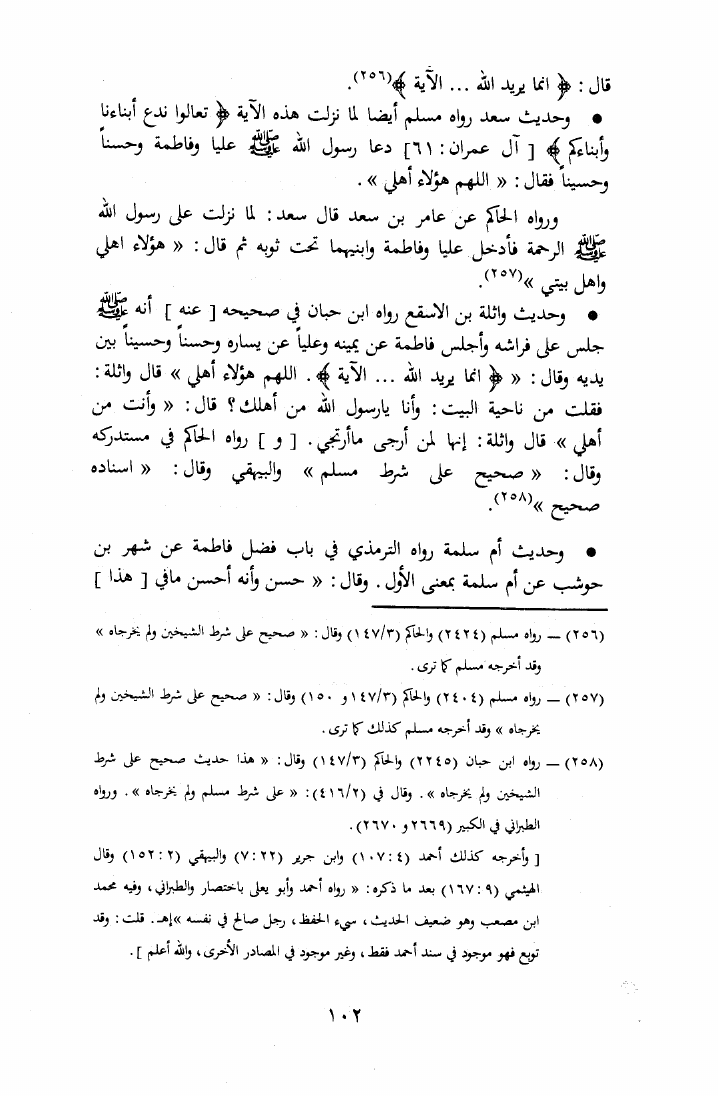 قال : ﴿ انما يريد الله ... الآية ﴾(٢٥٦).
• وحديث سعد رواه مسلم أيضا لما نزلت هذه الآية ﴿ تعالوا ندع أبناءنا
وأبناءكم ﴾ [ آل عمران : ٦١] دعا رسول الله ﷺ عليا وفاطمة وحسناً
وحسيناً فقال : « اللهم هؤلاء أهلي » .
ورواه الحاكم عن عامر بن سعد قال سعد : لما نزلت على رسول الله
ﷺ الرحمة فأدخل عليا وفاطمة وابنيهما تحت ثوبه ثم قال : « هؤلاء اهلي
واهل بيتي »(٢٥٧).
• وحديث واثلة بن الاسقع رواه ابن حبان في صحيحه [ عنه ] أنه ﷺ
جلس على فراشه وأجلس فاطمة عن يمينه وعلياً عن يساره وحسناً وحسيناً بين
يديه وقال : « ﴿ انما يريد الله ... الآية ﴾ . اللهم هؤلاء أهلي » قال واثلة :
فقلت من ناحية البيت : وأنا يارسول الله من أهلك ؟ قال : « وأنت من
أهلي » قال واثلة : إنها لمن أرجى ماأرتجي . [ و ] رواه الحاكم في مستدركه
وقال : « صحيح على شرط مسلم » والبيهقي وقال : « اسناده
صحيح »(٢٥٨).
• وحديث أم سلمة رواه الترمذي في باب فضل فاطمة عن شهر بن
حوشب عن أم سلمة بمعنى الأول . وقال : « حسن وأنه أحسن مافي [ هذا ]
(٢٥٦) — رواه مسلم (٢٤٢٤) والحاكم (١٤٧/٣) وقال : « صحيح على شرط الشيخين ولم يخرجاه »
وقد أخرجه مسلم كما ترى .
(٢٥٧) — رواه مسلم (٢٤٠٤) والحاكم (١٤٧/٣ و ١٥٠) وقال : « صحيح على شرط الشيخين ولم
يخرجاه » وقد أخرجه مسلم كذلك كما ترى .
(٢٥٨) — رواه ابن حبان (٢٢٤٥) والحاكم (١٤٧/٣) وقال : « هذا حديث صحيح على شرط
الشيخين ولم يخرجاه » . وقال في (٤١٦/٢) : « على شرط مسلم ولم يخرجاه » . ورواه
الطبراني في الكبير (٢٦٦٩ و ٢٦٧٠) .
[ وأخرجه كذلك أحمد (١٠٧:٤) وابن جرير (٧:٢٢) والبيهقي (١٥٢:٢) وقال
الهيثمي (١٦٧:٩) بعد ما ذكره : « رواه أحمد وأبو يعلى باختصار والطبراني ، وفيه محمد
ابن مصعب وهو ضعيف الحديث ، سيء الحفظ ، رجل صالح في نفسه » إهـ . قلت : وقد
توبع فهو موجود في سند أحمد فقط ، وغير موجود في المصادر الأخرى ، والله أعلم ] .
١٠٢